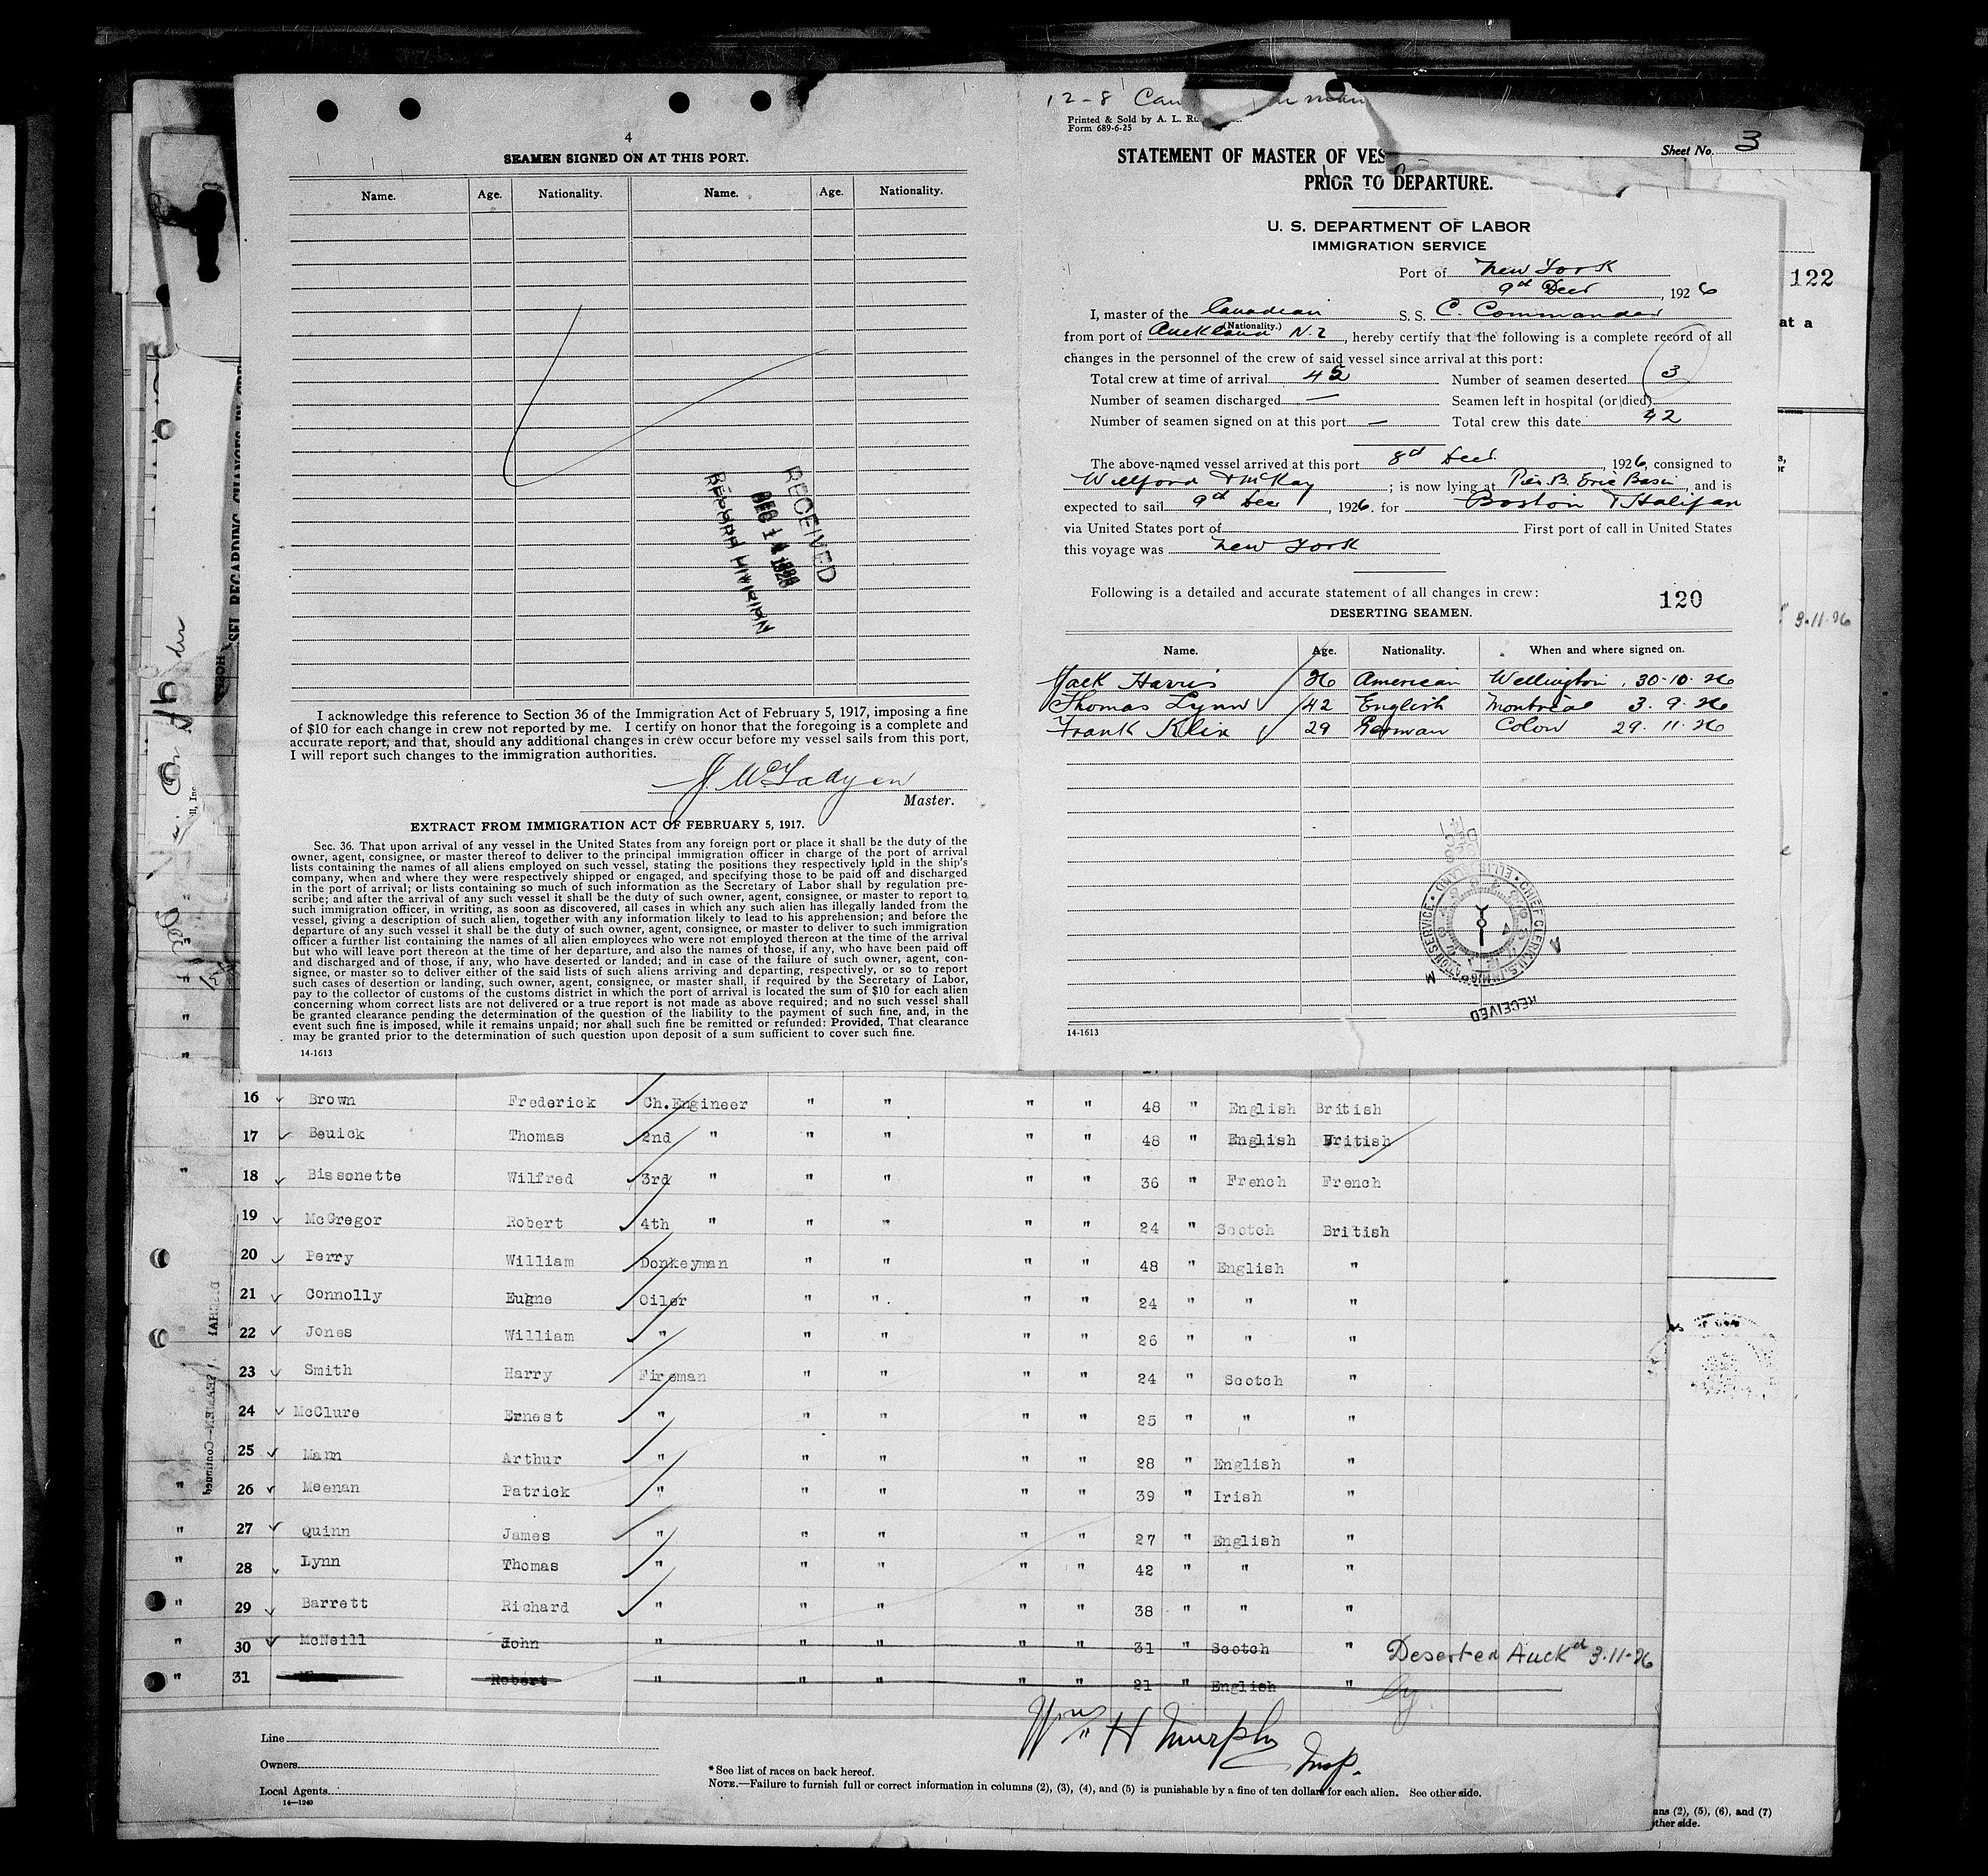 4
SEAMEN SIGNED ON AT THIS PORT.
Name. Age. Nationality. Name. Age. Nationality.
RECEIVED
DEC 14 1926
I acknowledge this reference to Section 36 of the Immigration Act of February 5, 1917, imposing a fine
of $10 for each change in crew not reported by me. I certify on honor that the foregoing is a complete and
accurate report, and that, should any additional changes in crew occur before my vessel sails from this port,
I will report such changes to the immigration authorities.
Master.
EXTRACT FROM IMMIGRATION ACT OF FEBRUARY 5, 1917.
Sec. 36. That upon arrival of any vessel in the United States from any foreign port or place it shall be the duty of the
owner, agent, consignee, or master thereof to deliver to the principal immigration officer in charge of the port of arrival
lists containing the names of all aliens employed on such vessel, stating the positions they respectively hold in the ship's
company, when and where they were respectively shipped or engaged, and specifying those to be paid off and discharged
in the port of arrival; or lists containing so much of such information as the Secretary of Labor shall by regulation pre-
scribe; and after the arrival of any such vessel it shall be the duty of such owner, agent, consignee, or master to report to
such immigration officer, in writing, as soon as discovered, all cases in which any such alien has illegally landed from the
vessel, giving a description of such alien, together with any information likely to lead to his apprehension; and before the
departure of any such vessel it shall be the duty of such owner, agent, consignee, or master to deliver to such immigration
officer a further list containing the names of all alien employees who were not employed thereon at the time of the arrival
but who will leave port thereon at the time of her departure, and also the names of those, if any, who have been paid off
and discharged and of those, if any, who have deserted or landed; and in case of the failure of such owner, agent, con-
signee, or master so to deliver either of the said lists of such aliens arriving and departing, respectively, or so to report
such cases of desertion or landing, such owner, agent, consignee, or master shall, if required by the Secretary of Labor,
pay to the collector of customs of the customs district in which the port of arrival is located the sum of $10 for each alien
concerning whom correct lists are not delivered or a true report is not made as above required; and no such vessel shall
be granted clearance pending the determination of the question of the liability to the payment of such fine, and, in the
event such fine is imposed, while it remains unpaid; nor shall such fine be remitted or refunded: Provided, That clearance
may be granted prior to the determination of such question upon deposit of a sum sufficient to cover such fine.
14-1613
12-8
Printed & Sold by A. L.
Form 689-6-25
Sheet No. 3
STATEMENT OF MASTER OF VES
PRIOR TO DEPARTURE.
U. S. DEPARTMENT OF LABOR
IMMIGRATION SERVICE
Port of New York
9th Decr, 1926
I, master of the Canadian S. S. C. Commander
(Nationality.)
from port of Auckland N.Z, hereby certify that the following is a complete record of all
changes in the personnel of the crew of said vessel since arrival at this port:
Total crew at time of arrival 45 Number of seamen deserted 3
Number of seamen discharged — Seamen left in hospital (or died)
Number of seamen signed on at this port — Total crew this date 42
The above-named vessel arrived at this port 8th Decr, 1926, consigned to
Willford & McKay; is now lying at Pier B. Erie Basin, and is
expected to sail 9th Decr, 1926. for Boston & Halifax
via United States port of First port of call in United States
this voyage was New York
Following is a detailed and accurate statement of all changes in crew: 120
DESERTING SEAMEN.
Name. Age. Nationality. When and where signed on.
Jack Harris 26 American Wellington. 30-10-26
Thomas Lynn 42 English Montreal 3. 9. 26
Frank Klix 29 German Colon 29. 11. 26
RECEIVED
14-1613
122
at a
3-11-26
16 Brown Frederick Ch.Engineer " " " " 48 " English British
17 Beuick Thomas 2nd " " " " " 48 " English British
" 18 Bissonette Wilfred 3rd " " " " " 36 " French French
19 McGregor Robert 4th " " " " " 24 " Scotch British
20 Perry William Donkeyman " " " " 48 " English "
21 Connolly Eugne Oiler " " " " 24 " " "
22 Jones William " " " " " 26 " " "
23 Smith Harry Fireman " " " " 24 " Scotch "
24 McClure Ernest " " " " " 25 " " "
25 Mann Arthur " " " " " 28 " English "
" 26 Meenan Patrick " " " " " 39 " Irish "
" 27 Quinn James " " " " " 27 " English "
" 28 Lynn Thomas " " " " " 42 " " "
" 29 Barrett Richard " " " " " 38 " " "
" 30 McNeill John " " " " " 31 " Scotch " Deserted Auckd 3-11-26
" 31 Robert " " " " " 21 " English "
Wm H Murphy Insp.
Line
Owners
Local Agents
14—1240
* See list of races on back hereof.
NOTE.—Failure to furnish full or correct information in columns (2), (3), (4), and (5) is punishable by a fine of ten dollars for each alien. See other side.
ans (2), (5), (6), and (7)
ther side.